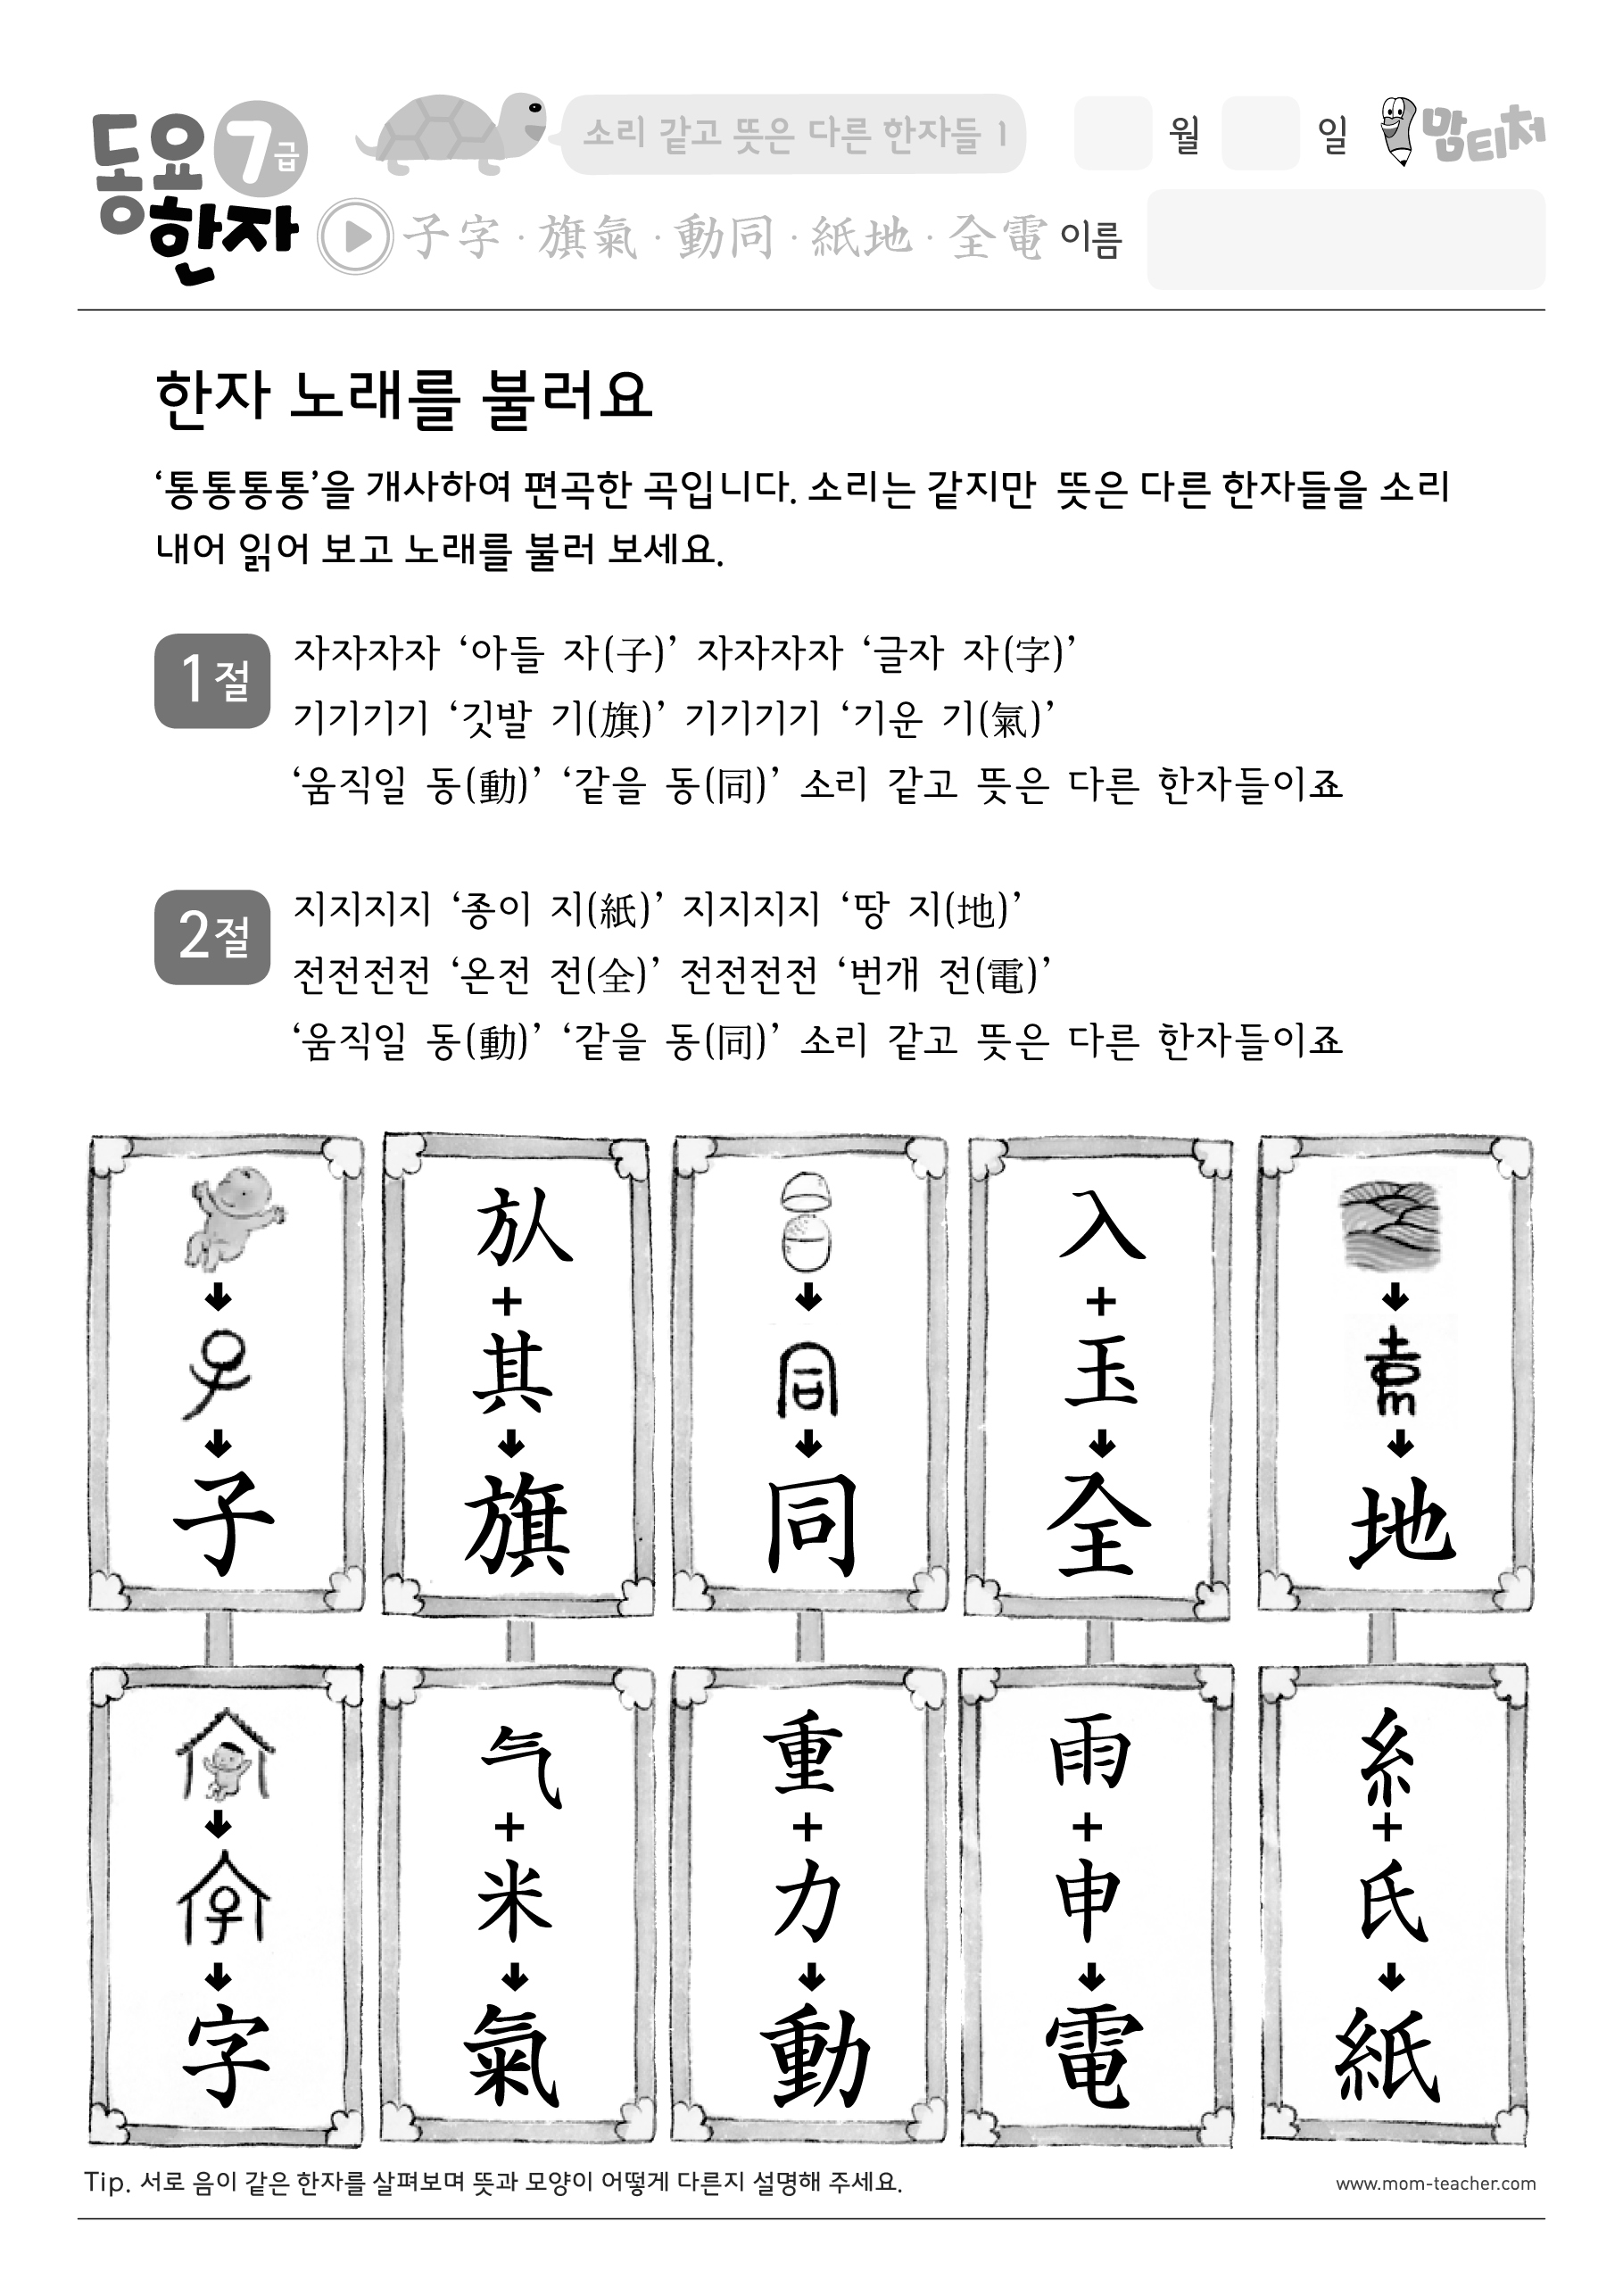 동요 7급 한자
소리 같고 뜻은 다른 한자들 1
월 일 맘티처
子字 · 旗氣 · 動同 · 紙地 · 全電 이름
한자 노래를 불러요
‘통통통통’을 개사하여 편곡한 곡입니다. 소리는 같지만 뜻은 다른 한자들을 소리
내어 읽어 보고 노래를 불러 보세요.
1절
자자자자 ‘아들 자(子)’ 자자자자 ‘글자 자(字)’
기기기기 ‘깃발 기(旗)’ 기기기기 ‘기운 기(氣)’
‘움직일 동(動)’ ‘같을 동(同)’ 소리 같고 뜻은 다른 한자들이죠
2절
지지지지 ‘종이 지(紙)’ 지지지지 ‘땅 지(地)’
전전전전 ‘온전 전(全)’ 전전전전 ‘번개 전(電)’
‘움직일 동(動)’ ‘같을 동(同)’ 소리 같고 뜻은 다른 한자들이죠
子
㫃
+
其
旗
同
入
+
玉
全
地
字
气
+
米
氣
重
+
力
動
雨
+
申
電
糸
+
氏
紙
Tip. 서로 음이 같은 한자를 살펴보며 뜻과 모양이 어떻게 다른지 설명해 주세요.
www.mom-teacher.com